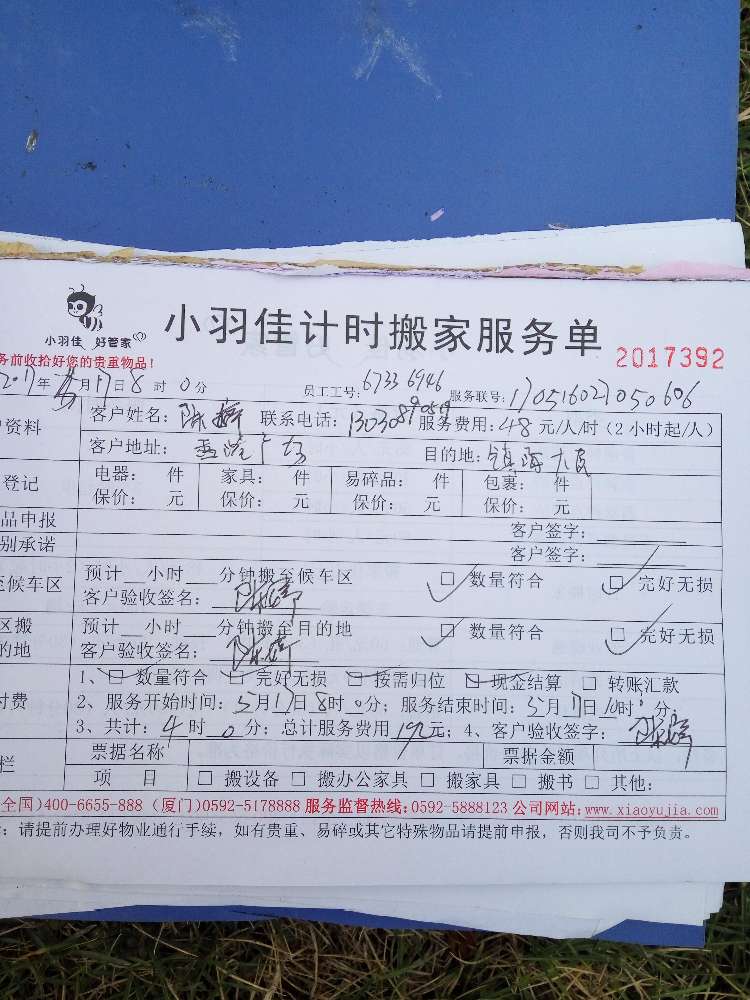 小羽佳 好管家
小羽佳计时搬家服务单
务前收拾好您的贵重物品！
2017392
2017年5月17日8时0分 员工工号:67336946 服务联号:17051602705060６
资料 客户姓名: 陈 联系电话: 服务费用:48元/人/时(2小时起/人)
客户地址: 目的地: 镇海
登记 电器: 件 家具: 件 易碎品: 件 包裹: 件
保价: 元 保价: 元 保价: 元 保价: 元
品申报 客户签字:
别承诺 客户签字:
至候车区 预计__小时___分钟搬至候车区 □数量符合 □完好无损
客户验收签名: 陈
区搬 预计__小时___分钟搬至目的地 □数量符合 □完好无损
的地 客户验收签名: 陈
1、□数量符合 □完好无损 □按需归位 □现金结算 □转账汇款
付费 2、服务开始时间: 5月17日8时0分; 服务结束时间: 5月17日10时0分;
3、共计: 4时0分; 总计服务费用192元; 4、客户验收签字: 陈
栏 票据名称 票据金额
项 目 □搬设备 □搬办公家具 □搬家具 □搬书 □其他:
全国)400-6655-888 (厦门)0592-5178888 服务监督热线:0592-5888123 公司网站:www.xiaoyujia.com
: 请提前办理好物业通行手续，如有贵重、易碎或其它特殊物品请提前申报，否则我司不予负责。